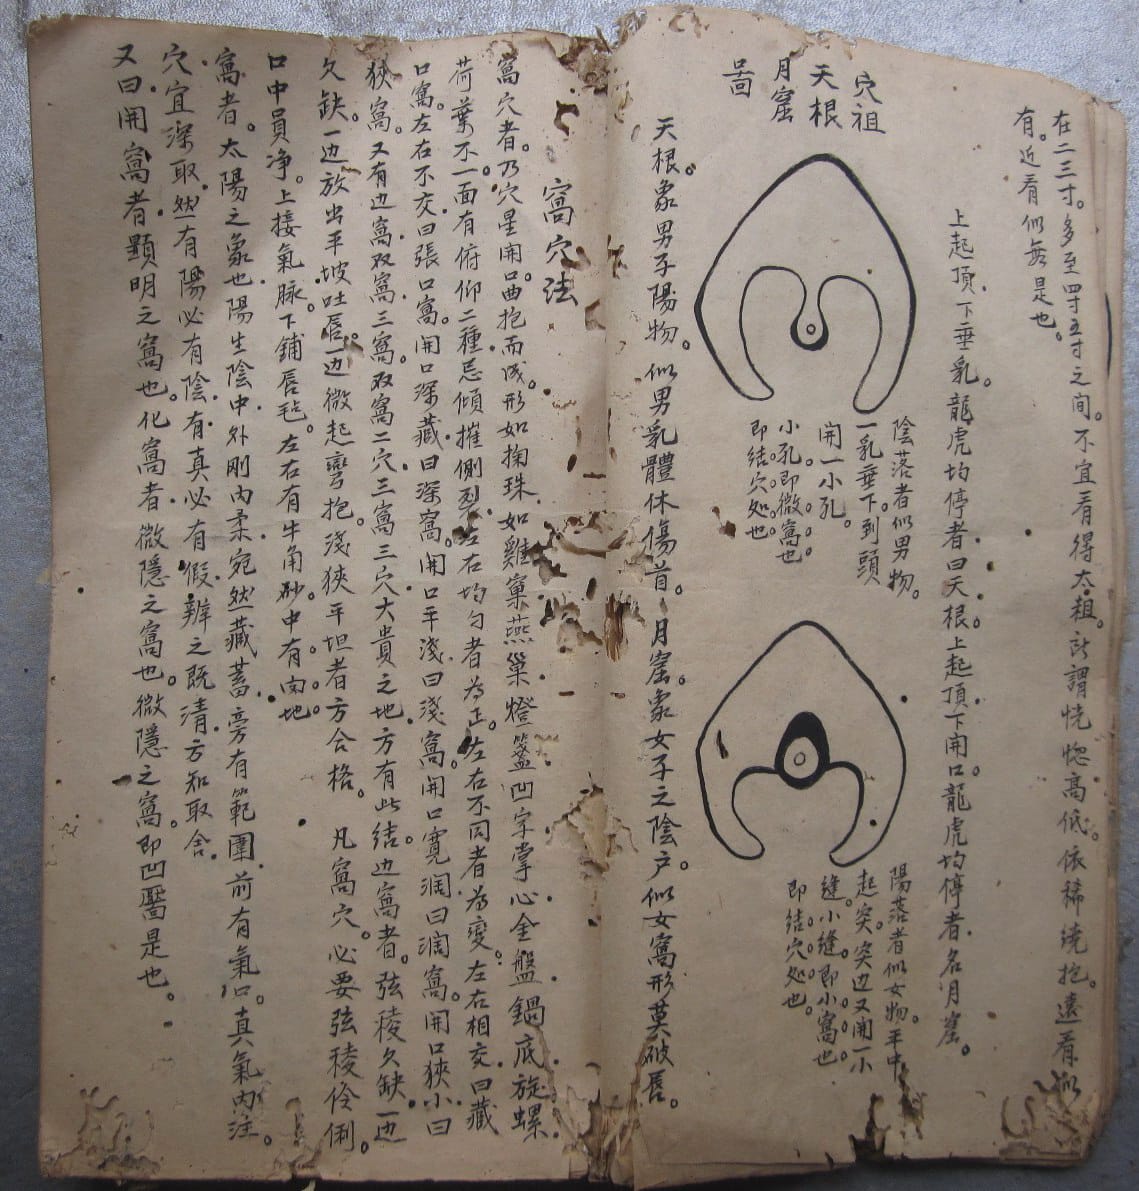 在二三寸。多至四寸五寸之间。不宜看得太祖。所謂恍惚高低。依稀绕抱。遠看似
有。近看似无是也。
上起頂。下垂乳。龍虎均停者曰天根。上起頂。下開口。龍虎均停者。名月窟。
穴祖
天根
月窟
啚
陰落者似男物。
一乳垂下。到頭
開一小孔。
小孔即微窩也
即結穴处也
陽落者似女物。平中
起突。突边又開一小
縫。小縫即小窩也
即結穴处也。
天根。象男子陽物。似男乳體休傷首。月窟。象女子之陰户。似女窩形莫破唇。
窩穴法
窩穴者。乃穴星開口曲抱而成。形如掬珠。如雞窠燕巢燈盞凹字掌心金盤鍋底旋螺
荷葉不一。面有俯仰二種。忌傾摧側裂。左右均匀者為正。左右不同者為变。左右相交曰藏
口窩。左右不交曰張口窩。開口深藏曰深窩。開口平淺曰淺窩。開口寬润曰濶窩。開口狹小曰
狹窩。又有边窩双窩三窩。双窩二穴。三窩三穴。大貴之地。方有此結。边窩者。弦稜欠缺。一边
欠缺。一边放出平坡吐唇。一边微起彎抱。淺狹平坦者方合格。 凡窩穴。必要弦稜伶俐。
口中員净。上接氣脉。下鋪唇毡。左右有牛角砂。中有肉地。
窩者。太陽之象也。陽生陰中。外刚内柔。宛然藏蓄。旁有範圍。前有氣口。真氣内注。
穴宜深取。然有陽必有陰。有真必有假。辨之既清。方知取舍。
又曰。開窩者。顯明之窩也。化窩者。微隱之窩也。微隱之窩。即凹靨是也。